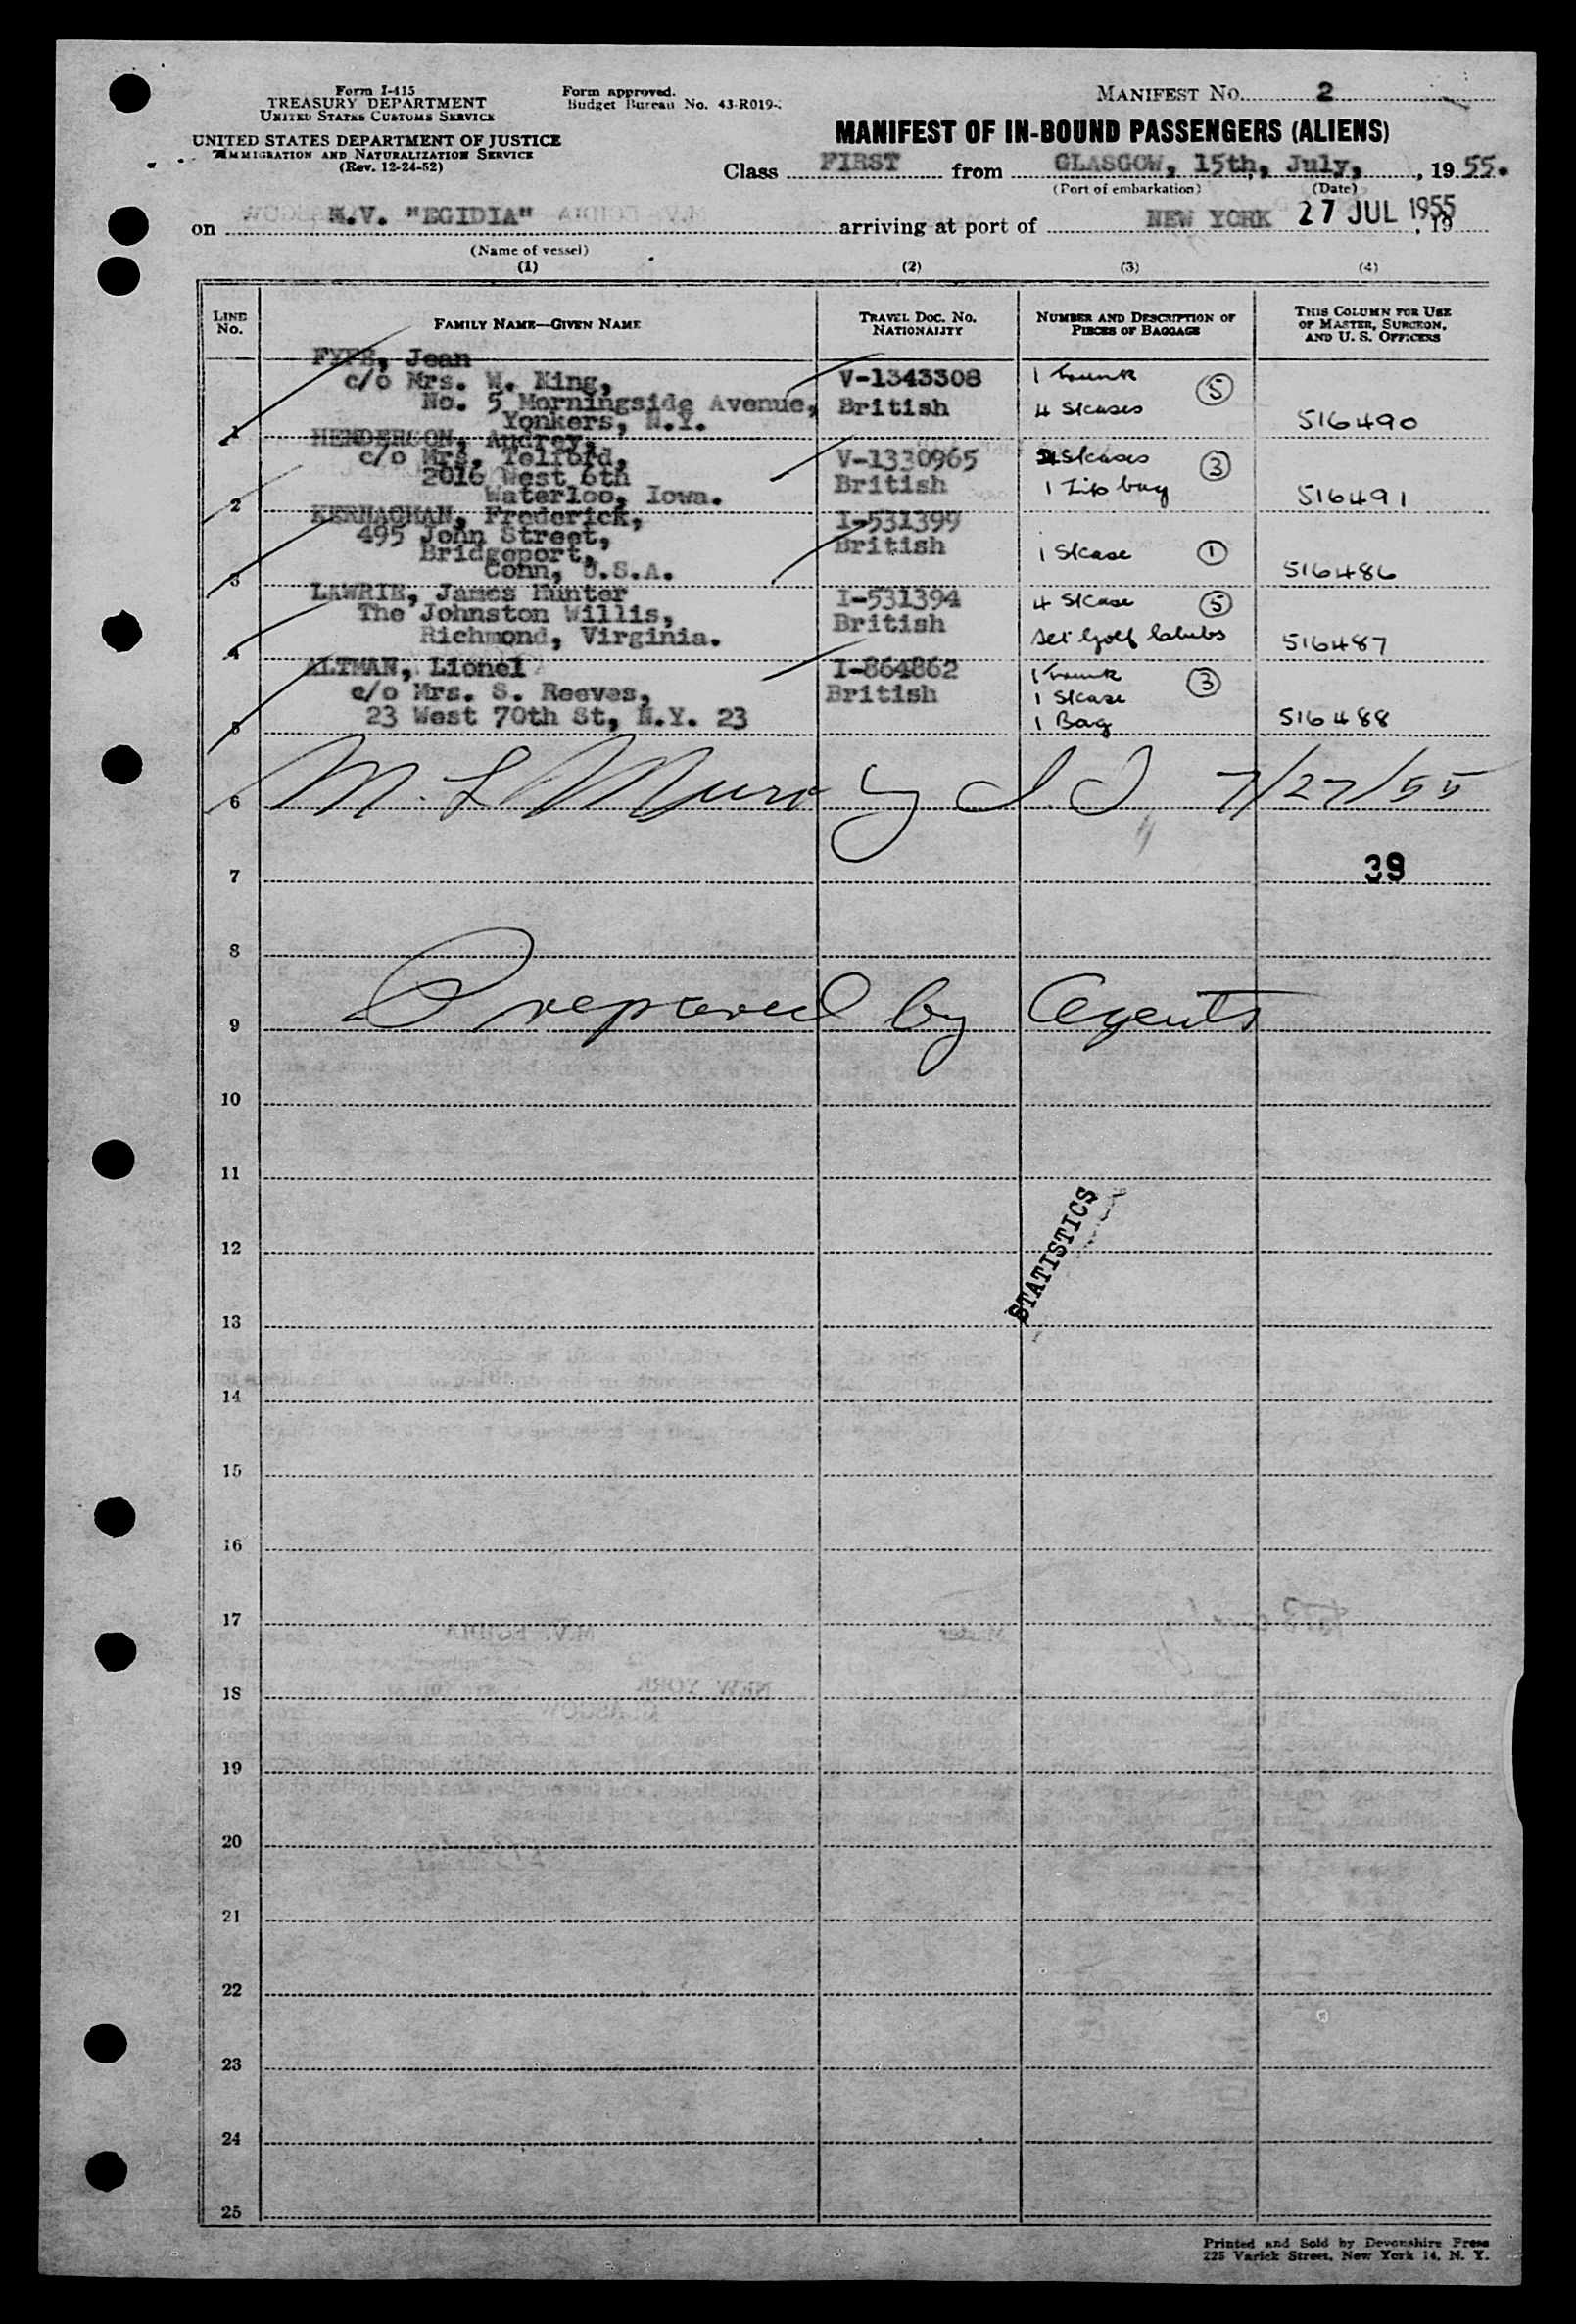 Form I-415
TREASURY DEPARTMENT
UNITED STATES CUSTOMS SERVICE
UNITED STATES DEPARTMENT OF JUSTICE
IMMIGRATION AND NATURALIZATION SERVICE
(Rev. 12-24-52)
Form approved.
Budget Bureau No. 43-R019-
MANIFEST NO. 2
MANIFEST OF IN-BOUND PASSENGERS (ALIENS)
Class FIRST from GLASGOW, 15th, July, , 19 55.
(Port of embarkation) (Date)
on M.V. "EGIDIA" arriving at port of NEW YORK 27 JUL 1955 , 19
(Name of vessel)
(1) (2) (3) (4)
LINE No. FAMILY NAME—GIVEN NAME TRAVEL DOC. NO. NATIONALITY NUMBER AND DESCRIPTION OF PIECES OF BAGGAGE THIS COLUMN FOR USE OF MASTER, SURGEON, AND U. S. OFFICERS
FYFE, Jean
c/o Mrs. W. King, V-1343308 1 Trunk 5
No. 5 Morningside Avenue, British 4 S/cases
1 Yonkers, N.Y. 516490
HENDERSON, Audrey,
c/o Mrs. Telford, V-1330965 S/cases 3
2016 West 6th British 1 Zip bag
2 Waterloo, Iowa. 516491
KERNAGHAN, Frederick, I-531399
495 John Street, British
Bridgeport, 1 S/case 1
3 Conn, U.S.A. 516486
LAWRIE, James Hunter I-531394 4 S/case 5
The Johnston Willis, British
4 Richmond, Virginia. Set Golf Clubs 516487
ALTMAN, Lionel I-864862 1 Trunk 3
c/o Mrs. S. Reeves, British 1 S/case
5 23 West 70th St, N.Y. 23 1 Bag 516488
6 M. L Murray I.I. 7/27/55
7 39
8
9 Prepared by Agents
10
11
STATISTICS
12
13
14
15
16
17
18
19
20
21
22
23
24
25
Printed and Sold by Devonshire Press
225 Varick Street, New York 14, N. Y.